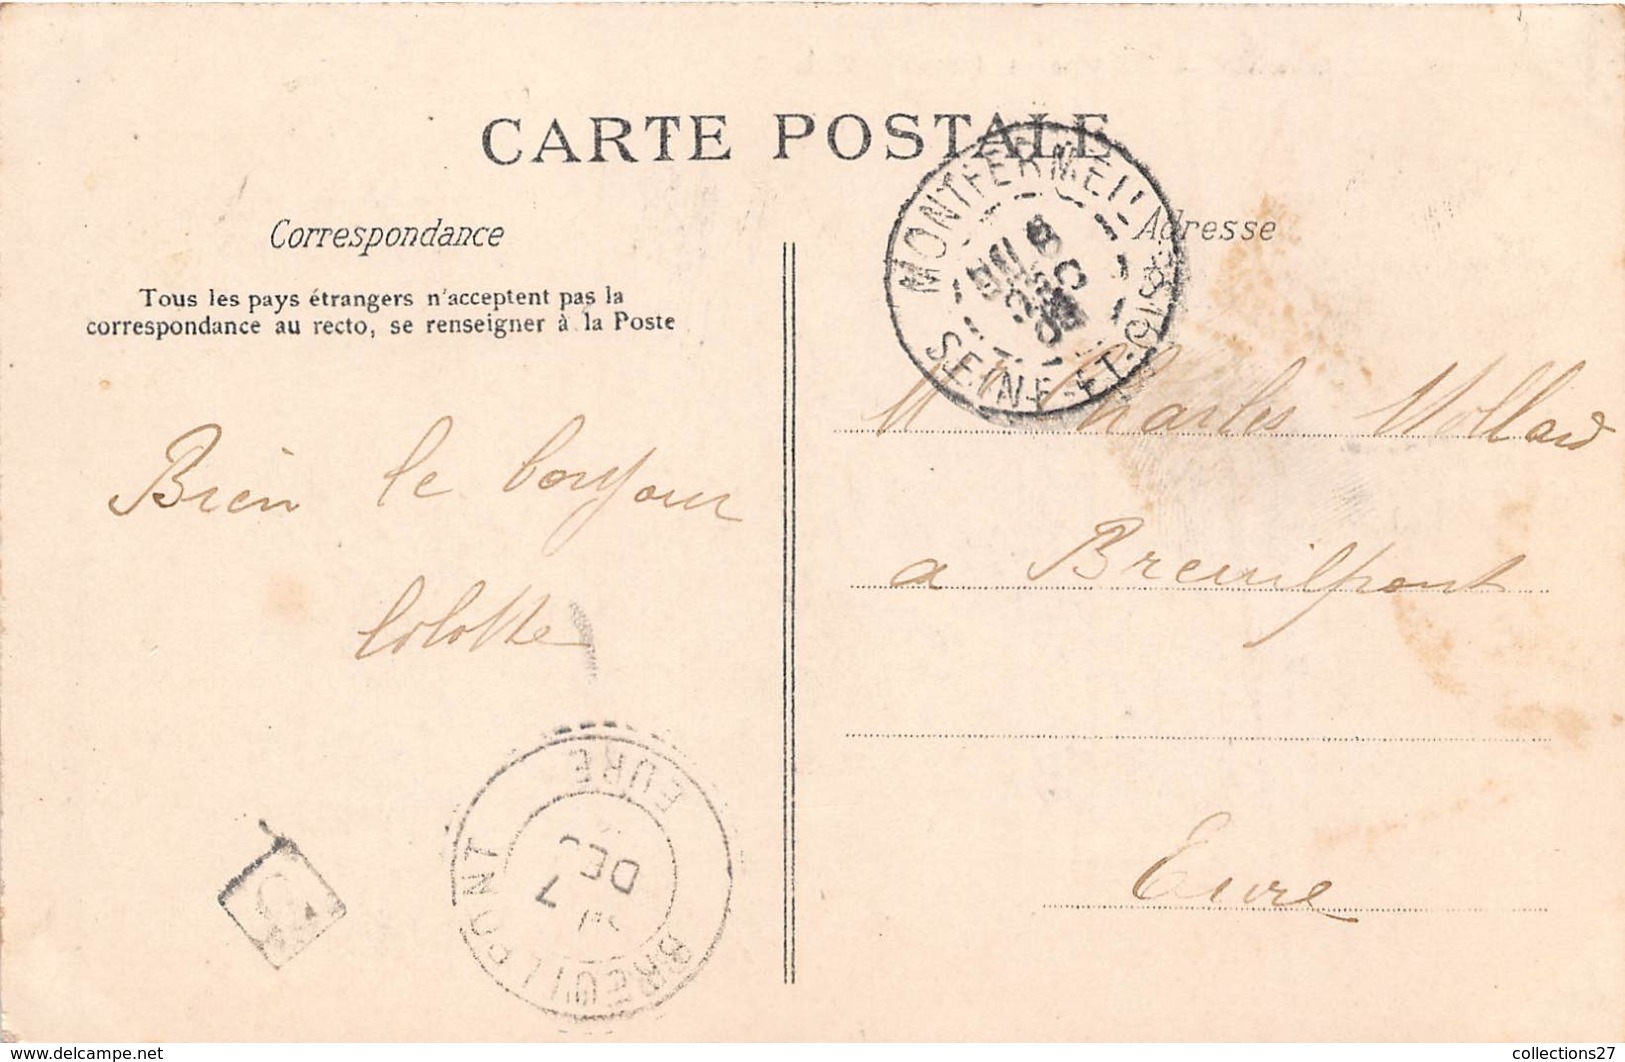 CARTE POSTALE
Correspondance
Adresse
Tous les pays étrangers n'acceptent pas la
correspondance au recto, se renseigner à la Poste
MONTFERMEIL
SEINE-ET-OISE
Bien le bonjour
Lolotte
M Charles Mollard
a Breuilpont
Eure
BREUILPONT
EURE
7
DEC
www.delcampe.net
collections27